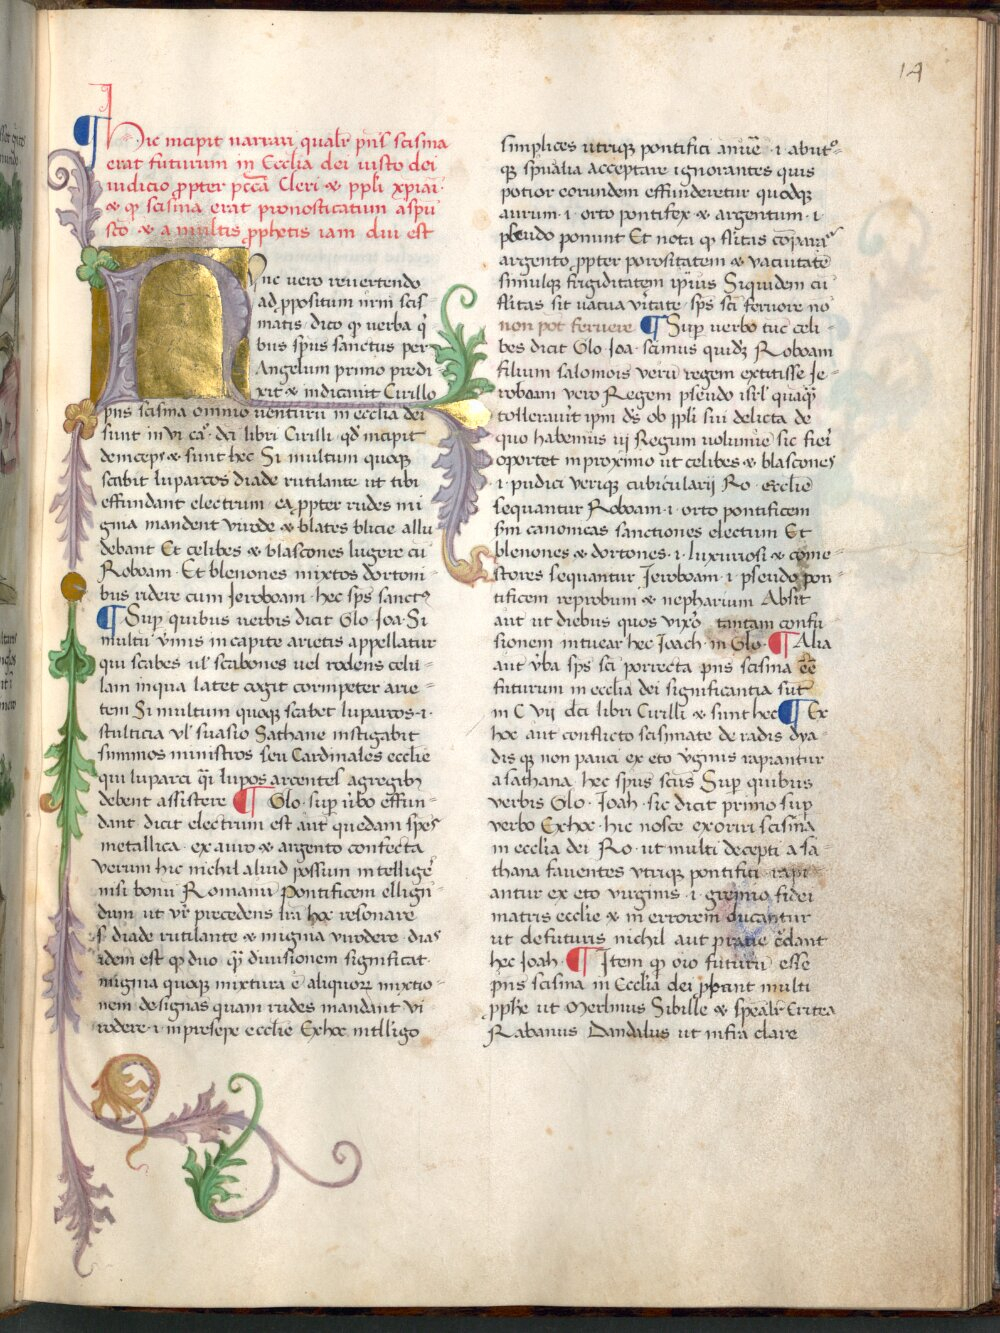 14
¶ Hic incipit narrari qualr̄ pn̄s scisma
erat futurum in Ecclīa dei iusto dei
iudicio ꝓpter pccā Cleri & ppli xp̄iai·
& ꝙ scisma erat pronosticatum a spū
sc̄o & a multis ꝓphetis iam diu est
Nuc vero reuertendo
ad ꝓpositum nr̄m scis=
matis dico ꝙ uerba q̄
bus spūs sanctus per
Angelum primo predi
xit & indicauit Cirillo
pn̄s scisma omnio uenturū in ecclīa dei
sunt in vi ca° dc̄i libri Cirilli qd̄ incipit
deinceps & sunt hec Si multum quoqꝫ
scabit luparcos diade rutilante ut tibi
effundant electrum ea ꝓpter rudes mi
gma mandent virode & blates blicie allu
debant Et celibes & blascones lugere cū
Roboam· Et blenones mixtos dortoni=
bus ridere cum Jeroboam· hec sp̄s sanctꝰ
¶ Suꝑ quibus uerbis dicit Glo· Joa· Si
multū v̄mis in capite arietis appellatur
qui scabes ul̄ scabones uel rodens celu=
lam in qua latet cogit cornupeter arie=
tem Si multum quoqꝫ scabet luparcos·i·
stulticia vl̄ suasio Sathane instigabit
summos ministros seu Cardinales ecclīe
qui luparci q̄i lupos arcentes a gregibꝫ
debent assistere ¶ Glo· sup v̄bo effun=
dant dicit electrum est aut quedam spēs
metallica· ex auro & argento confecta
verum hic nichil aliud possum intellige
nisi bonū Romanū Pontificem ellign̄
dum ut vr̄ precedens lr̄a hoc resonare
s· diade rutilante & migina virodere· dias
idem est ꝙ duo q̄i diuisionem significat·
migina quoqꝫ mixtura ē aliquorꝝ mixtio=
nem designas quam rudes mandant vi
rodere·i· in presepe ecclīe Ex hoc intelligo
simplices utriqꝫ pontifici ·i· abut°
qꝫ spūalia acceptare ignorantes quis
potior eorundem effunderetur quodqꝫ
aurum·i· orto pontifex & argentum·i·
pseudo ponunt Et nota ꝙ fl̄itas cōparat̄
argento ꝓpter porositatem & vacuitatē
simulqꝫ frigiditatem ip̄ius Siquidem cū
fl̄itas sit uacua v̄itate· sp̄s sc̄i feruore nō
non pōt feruere ¶ Suꝑ uerbo tūc celi=
bes dicit Glo Joa· scimus quidꝫ Roboam
filium salomois verū regem extitisse Je=
roboam vero Regem pseudo isrl̄ quāꝗ
tollerauit ip̄m ds̄ ob ppli sui delicta de
quo habemus iij Regum uolumie sic fieri
oportet in proximo ut celibes & blascones
·i· pudici verisqꝫ cubicularij Ro· ecclīe
sequantur Roboam·i· orto pontificem
sm̄ canonicas sanctiones electum Et
blenones & dortones·i· luxuriosi & come=
stores sequantur Jeroboam·i· pseudo pon=
tificem reprobum & nepharium Absit
aut ut diebus quos vixo tantam confu
sionem intuear hec Joach· in Glo· ¶ Alia
aut v̄ba sp̄s sc̄i porrecta pn̄s scisma ēē
futurum in ecclīa dei significantia sūt
in C vij dc̄i libri Cirilli & sunt hec ¶ Ex
hoc aut conflicto scismate de radis dya=
dis qꝫ non pauci ex eto v̄ginis rapiantur
a sathana· hec spūs scūs Suꝑ quibus
verbis Glo· Joah· sic dicit primo sup
verbo Ex hoc· hic nosce exoriri scisma
in ecclīa dei Ro· ut multi decepti a sa=
thana fauentes vtriqꝫ pontifici rapi=
antur ex eto virginis·i· gremio fidei
matris ecclīe & in errorem ducantur
ut de futuris nichil aut praue c̄dant
hec Joah· ¶ Item ꝙ oro futurū esse
pn̄s scisma in Ecclīa dei multi
ꝓphe ut Merlinus Sibille & spēalr̄ Eritea
Rabanus Dandalus ut infra clare